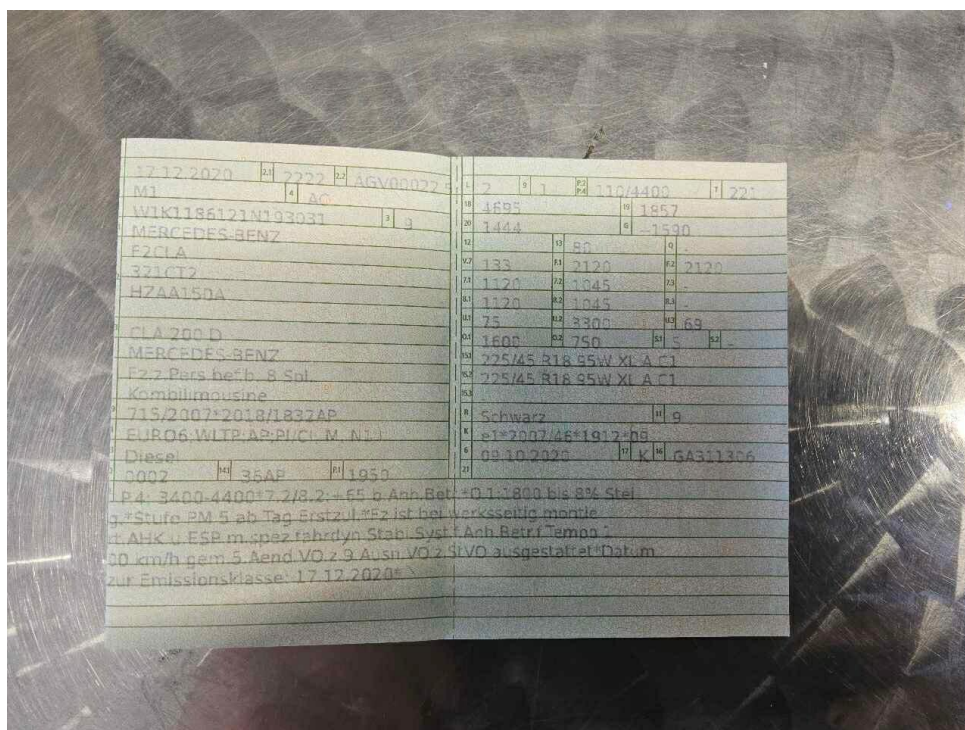 17.12.2020 2.1 2222 2.2 AGV00022 5
M1 4 AC
W1K1186121N193031 3 9
MERCEDES-BENZ
F2CLA
321CT2
HZAA150A
CLA 200 D
MERCEDES-BENZ
Fz.z.Pers.bef.b. 8 Spl.
Kombilimousine
715/2007*2018/1832AP
EURO6;WLTP;AP;PI/CI; M, N1 I
Diesel
0002 14.1 36AP P.1 1950
L 2 9 1 P.2 P.4 110/4400 T 221
18 4695 19 1857
20 1444 G -1590
12 13 80 Q -
V.7 133 F.1 2120 F.2 2120
7.1 1120 7.2 1045 7.3 -
8.1 1120 8.2 1045 8.3 -
U.1 75 U.2 3300 U.3 69
O.1 1600 O.2 750 S.1 5 S.2 -
15.1 225/45 R18 95W XL A C1
15.2 225/45 R18 95W XL A C1
15.3
R Schwarz 11 9
K e1*2007/46*1912*09
6 09.10.2020 17 K 16 GA311306
21
P.4: 3400-4400*7.2/8.2:+65 b.Anh.Betr.*O.1:1800 bis 8% Stei
g.*Stufe PM 5 ab Tag Erstzul.*Fz ist bei werksseitig montie
t. AHK u.ESP m.spez.fahrdyn.Stabi.Syst.f.Anh.Betr.f.Tempo 1
00 km/h gem.5.Aend.VO.z.9.Ausn.VO.z.StVO ausgestattet*Datum
zur Emissionsklasse: 17.12.2020*